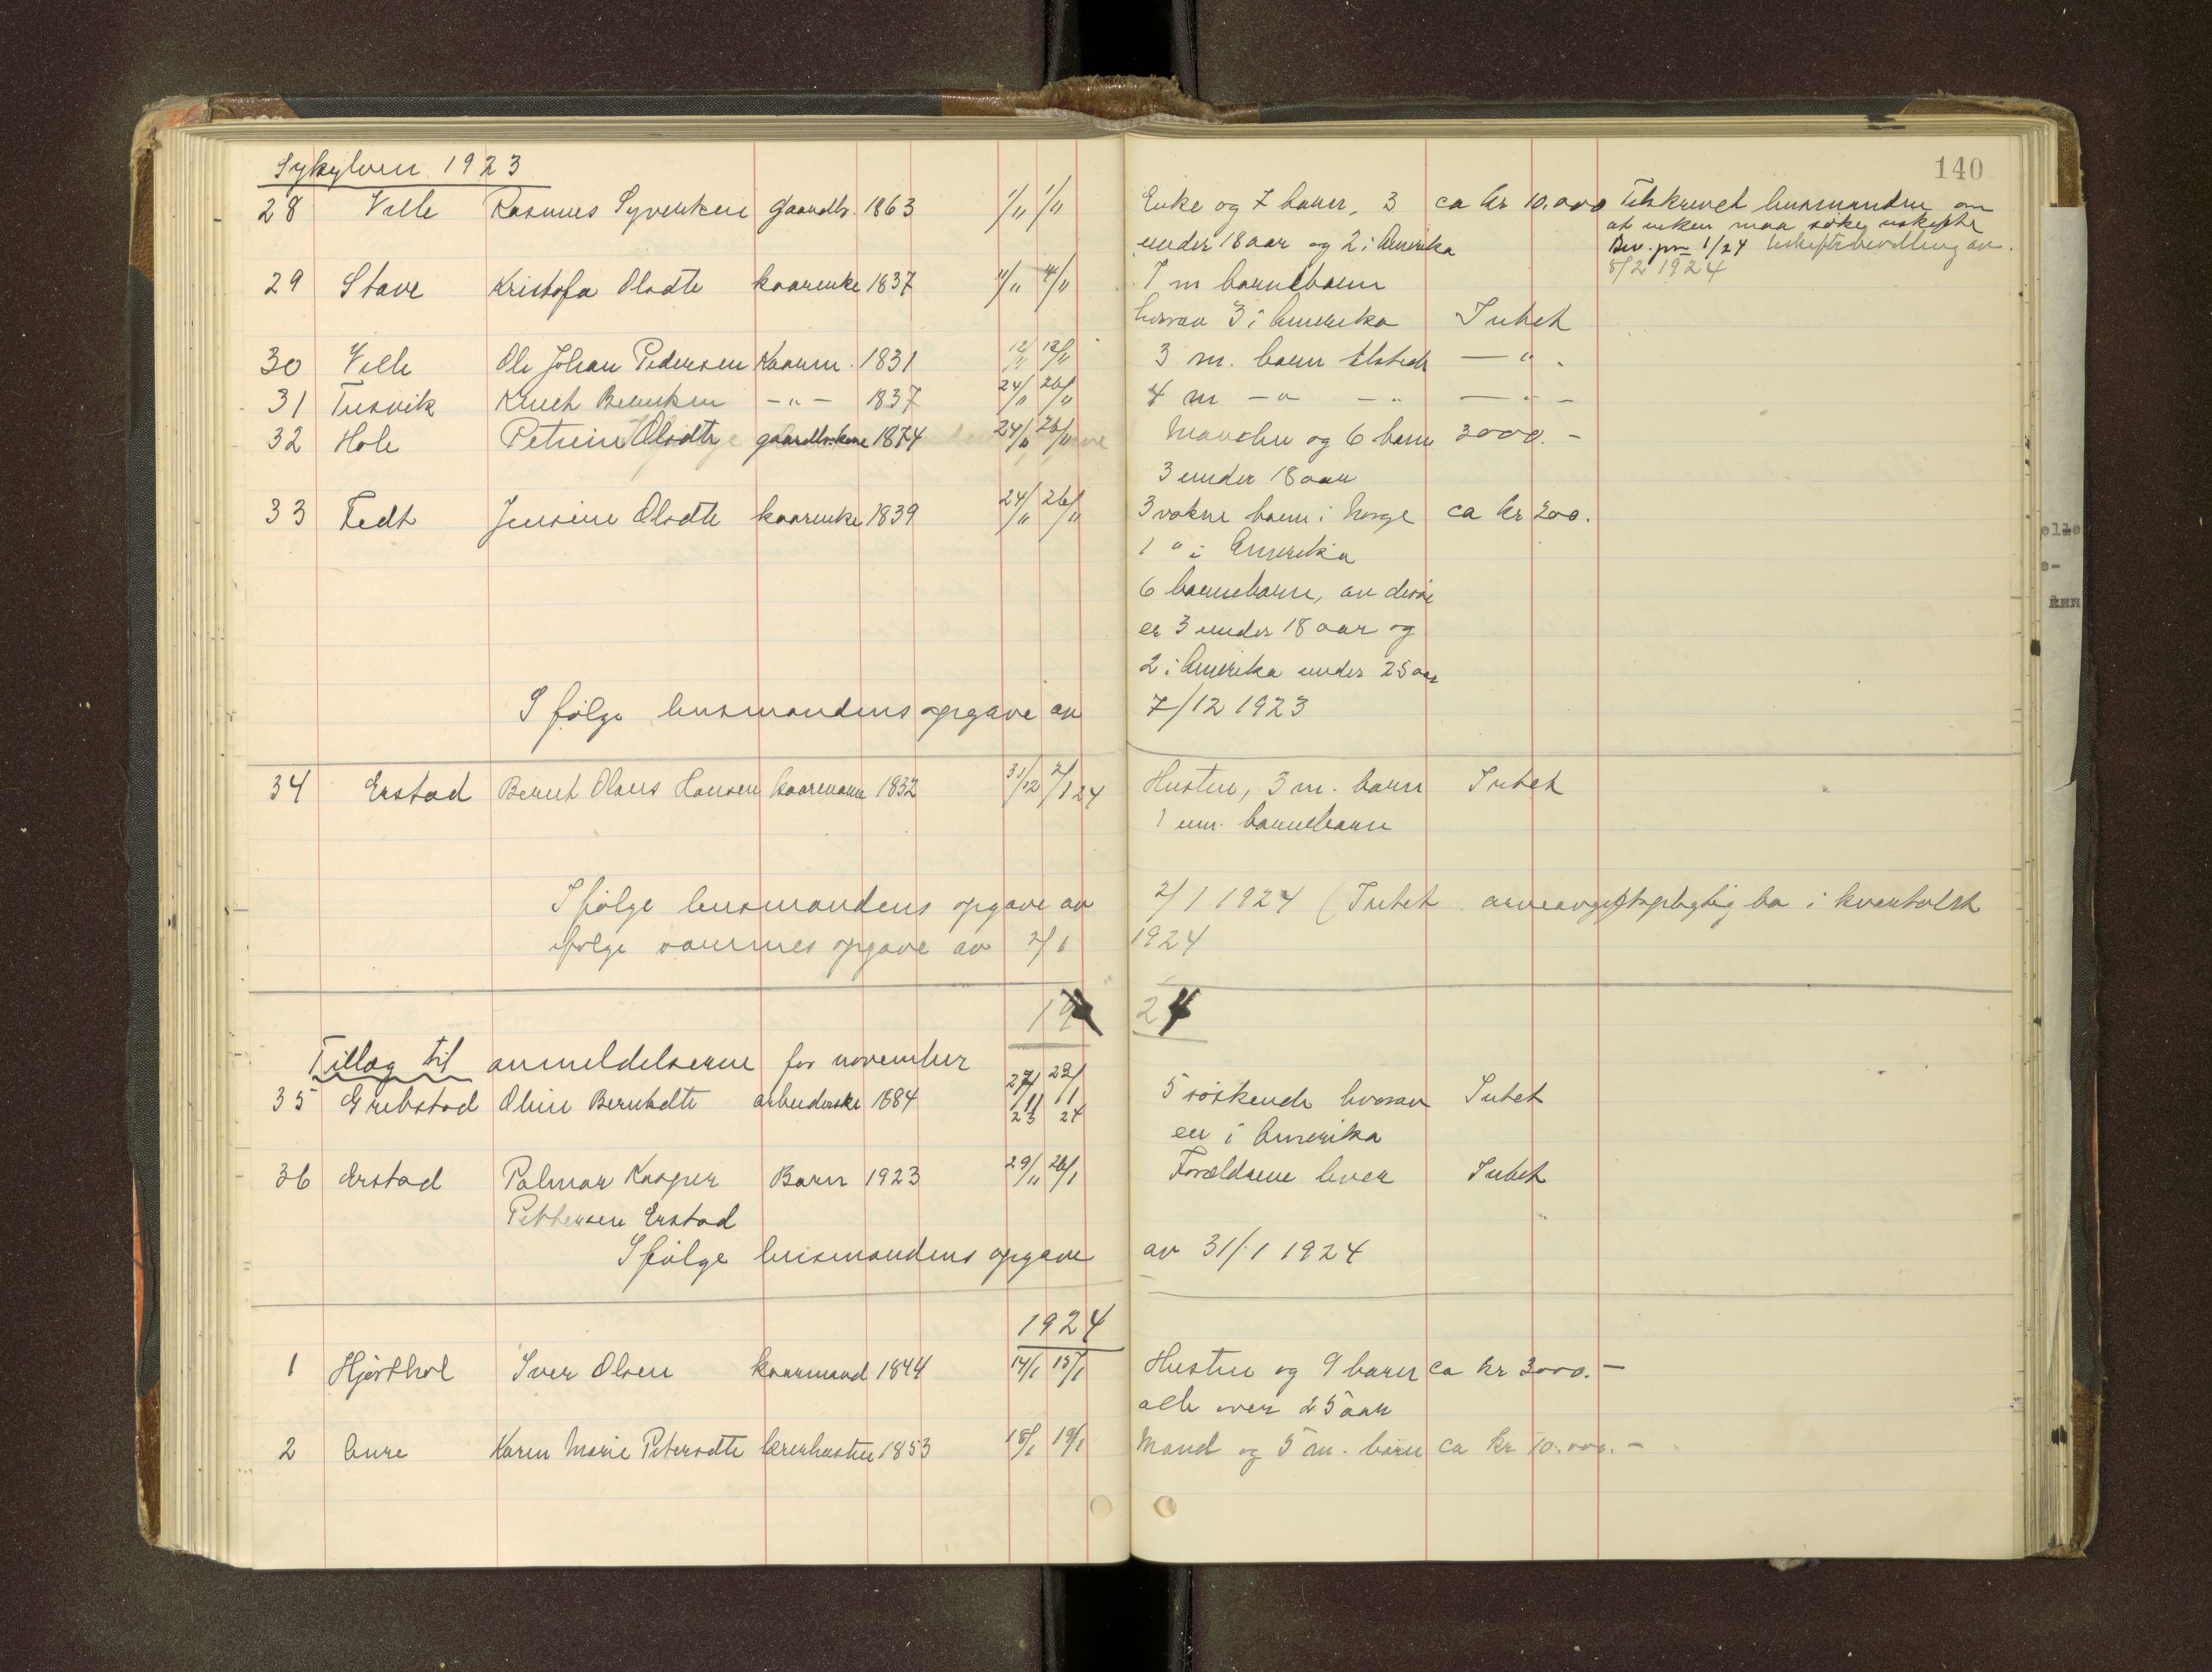 Sykylven 1923
140
28 Velle Rasmus Syvertsen gaardbr. 1863 1/11 1/11 Enke og 7 barn, 3 ca kr 10.000 Tilskrevet lensmanden om
at enken maa söke uskifte
under 18 aar og 2 i Amerika Bev. pr 1/24 Uskiftebevilling av
8/2 1924
29 Stave Kristofa Olsdtr kaarenke 1837 4/11 7 m barnebarn
hvorav 3 i Amerika Intet
30 Velle Ole Johan Pedersen Kaarm. 1831 12/11 12/11 3 m. barn tilstede — " -
31 Tusvik Knut Berntsen - " - 1837 24/11 26/11 4 m - " - - " — " -
32 Hole Petrine Olsdtr gaardbr.kone 1874 24/11 26/11 Manden og 6 barn 3000.-
3 under 18 aar
33 Tedt Jensine Olsdtr kaarenke 1839 24/11 26/11 3 voksne barn i Norge ca kr 200.
1 " i Amerika
6 barnebarn, av disse
er 3 under 18 aar og
2 i Amerika under 25 aar
Ifölge lensmandens opgave av 7/12 1923
34 Erstad Bernt Olaus Hansen kaarmann 1832 31/12 2/1 24 Hustru, 3 m. barn Intet
1 um. barnebarn
Ifölge lensmandens opgave av 2/1 1924 (Intet arveavgiftspligtig bo i kvartalet
ifölge sammes opgave av 2/1 1924
1924
Tillæg til anmeldelserne for november
35 Grebstad Oline Berntsdtr arbeiderske 1884 27/11 23 23/1 24 5 söskende hvorav Intet
en i Amerika
36 Erstad Palmar Kasper Barn 1923 29/11 26/1 Forældrene lever Intet
Pettersen Erstad
Ifölge lensmandens opgave av 31/1 1924
1924
1 Hjorthol Iver Olsen kaarmand 1844 14/1 15/1 Hustru og 9 barn ca kr 3000.-
alle over 25 aar
2 Aure Karen Marie Petersdtr lærerhustru 1853 18/1 19/1 Mand og 5 m. barn ca kr 10.000.-